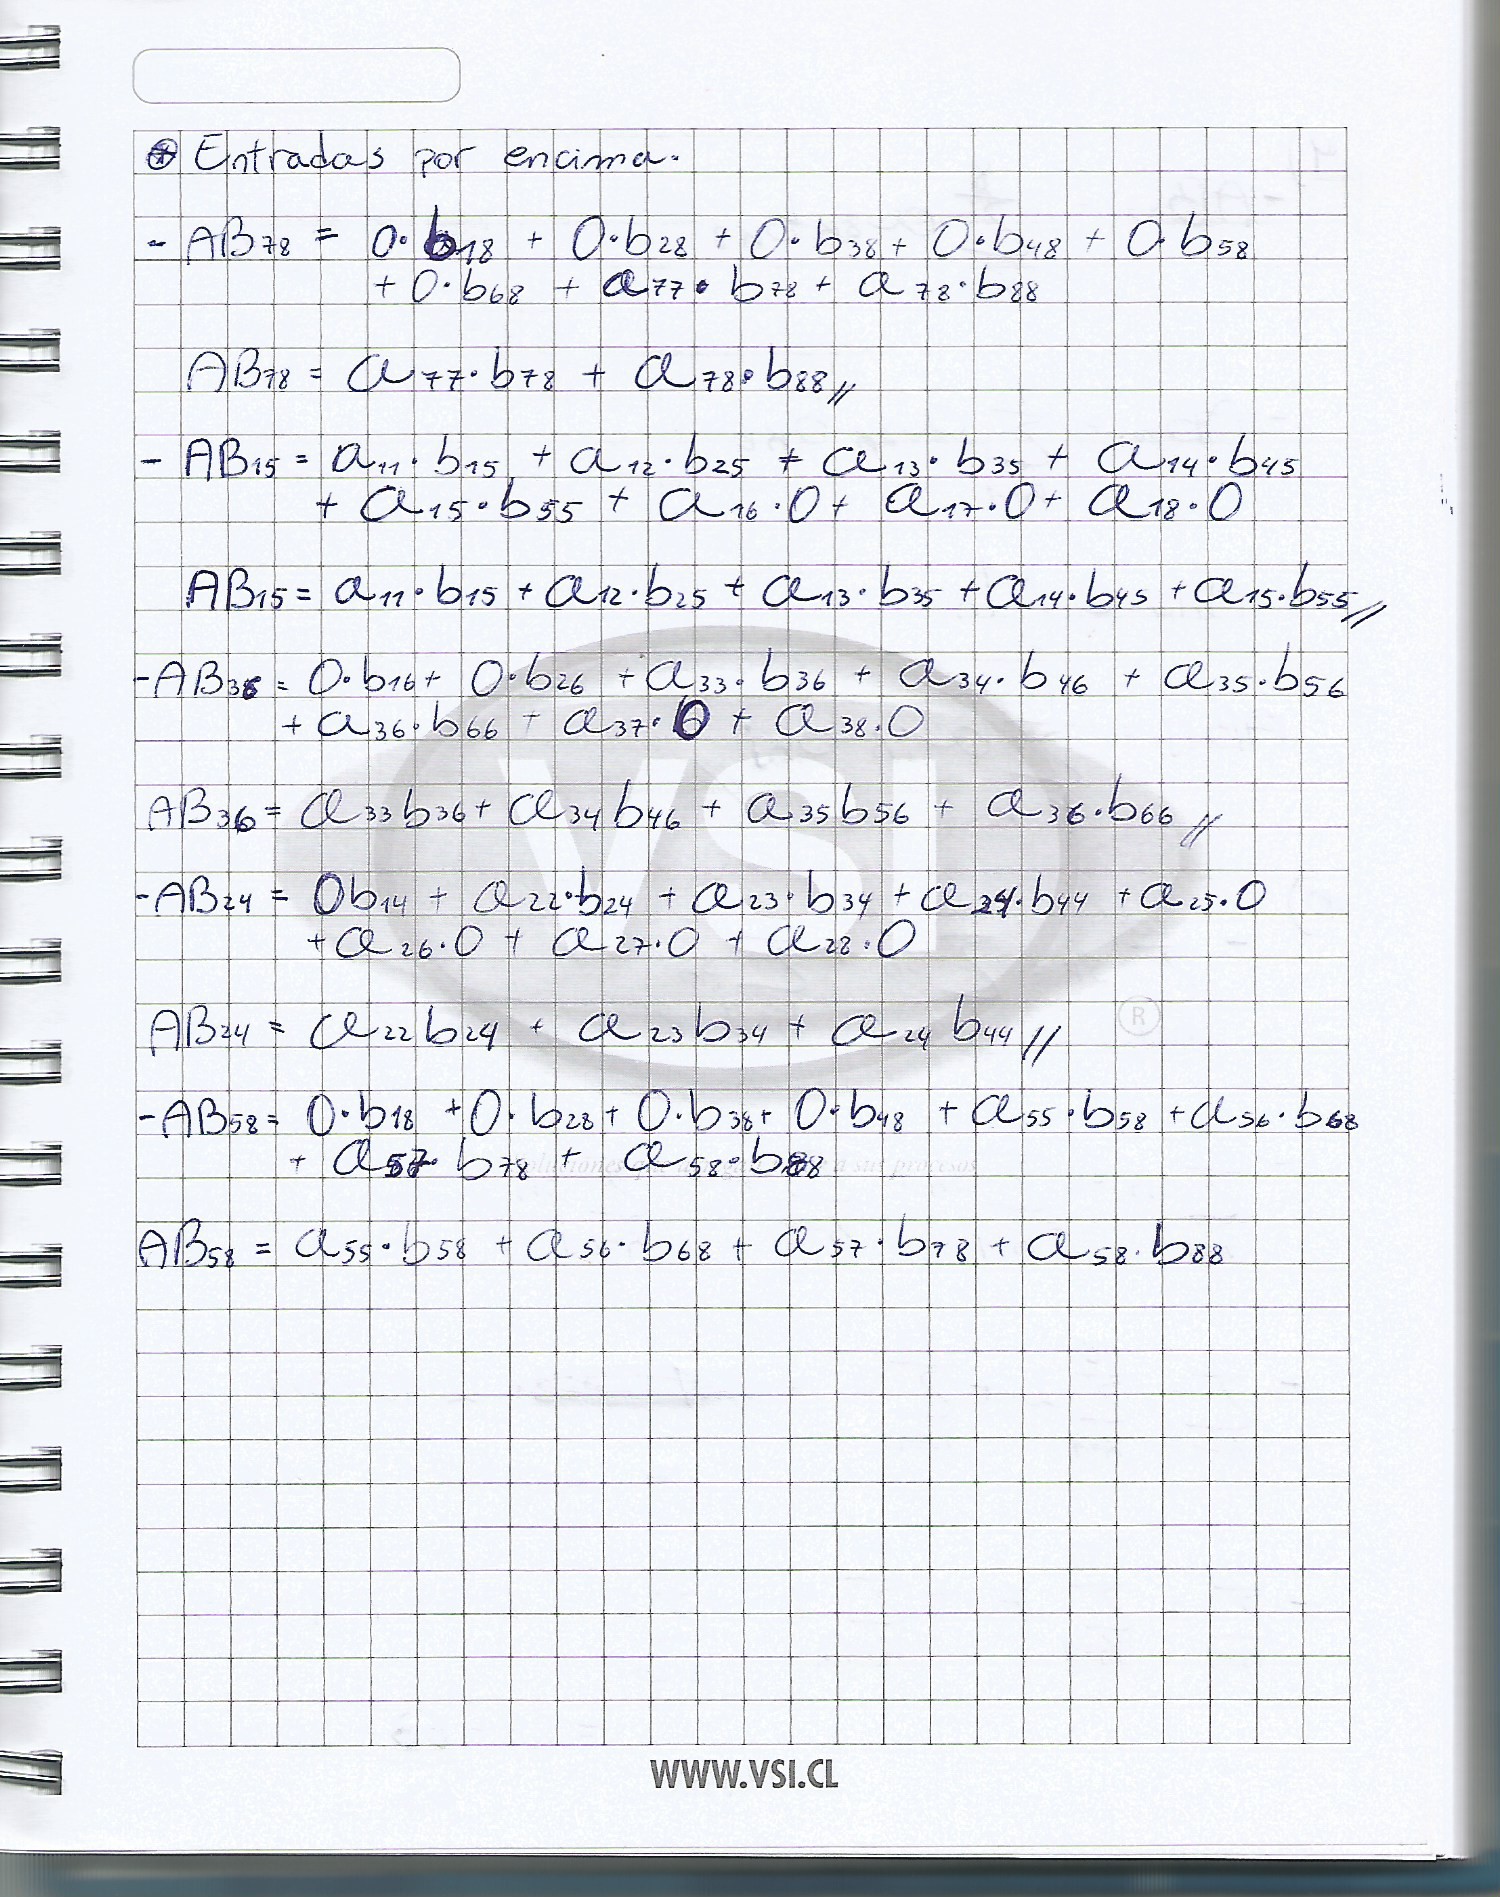 ⊛ Entradas por encima.
- AB₇₈ = 0·b₁₈ + 0·b₂₈ + 0·b₃₈ + 0·b₄₈ + 0·b₅₈
+ 0·b₆₈ + a₇₇·b₇₈ + a₇₈·b₈₈
AB₇₈ = a₇₇·b₇₈ + a₇₈·b₈₈//
- AB₁₅ = a₁₁·b₁₅ + a₁₂·b₂₅ + a₁₃·b₃₅ + a₁₄·b₄₅
+ a₁₅·b₅₅ + a₁₆·0 + a₁₇·0 + a₁₈·0
AB₁₅ = a₁₁·b₁₅ + a₁₂·b₂₅ + a₁₃·b₃₅ + a₁₄·b₄₅ + a₁₅·b₅₅//
- AB₃₆ = 0·b₁₆ + 0·b₂₆ + a₃₃·b₃₆ + a₃₄·b₄₆ + a₃₅·b₅₆
+ a₃₆·b₆₆ + a₃₇·0 + a₃₈·0
AB₃₆ = a₃₃b₃₆ + a₃₄b₄₆ + a₃₅b₅₆ + a₃₆·b₆₆//
- AB₂₄ = 0b₁₄ + a₂₂·b₂₄ + a₂₃·b₃₄ + a₂₄·b₄₄ + a₂₅·0
+ a₂₆·0 + a₂₇·0 + a₂₈·0
AB₂₄ = a₂₂b₂₄ + a₂₃b₃₄ + a₂₄b₄₄//
- AB₅₈ = 0·b₁₈ + 0·b₂₈ + 0·b₃₈ + 0·b₄₈ + a₅₅·b₅₈ + a₅₆·b₆₈
+ a₅₇·b₇₈ + a₅₈·b₈₈
AB₅₈ = a₅₅·b₅₈ + a₅₆·b₆₈ + a₅₇·b₇₈ + a₅₈·b₈₈
VSI
®
a sus procesos
WWW.VSI.CL